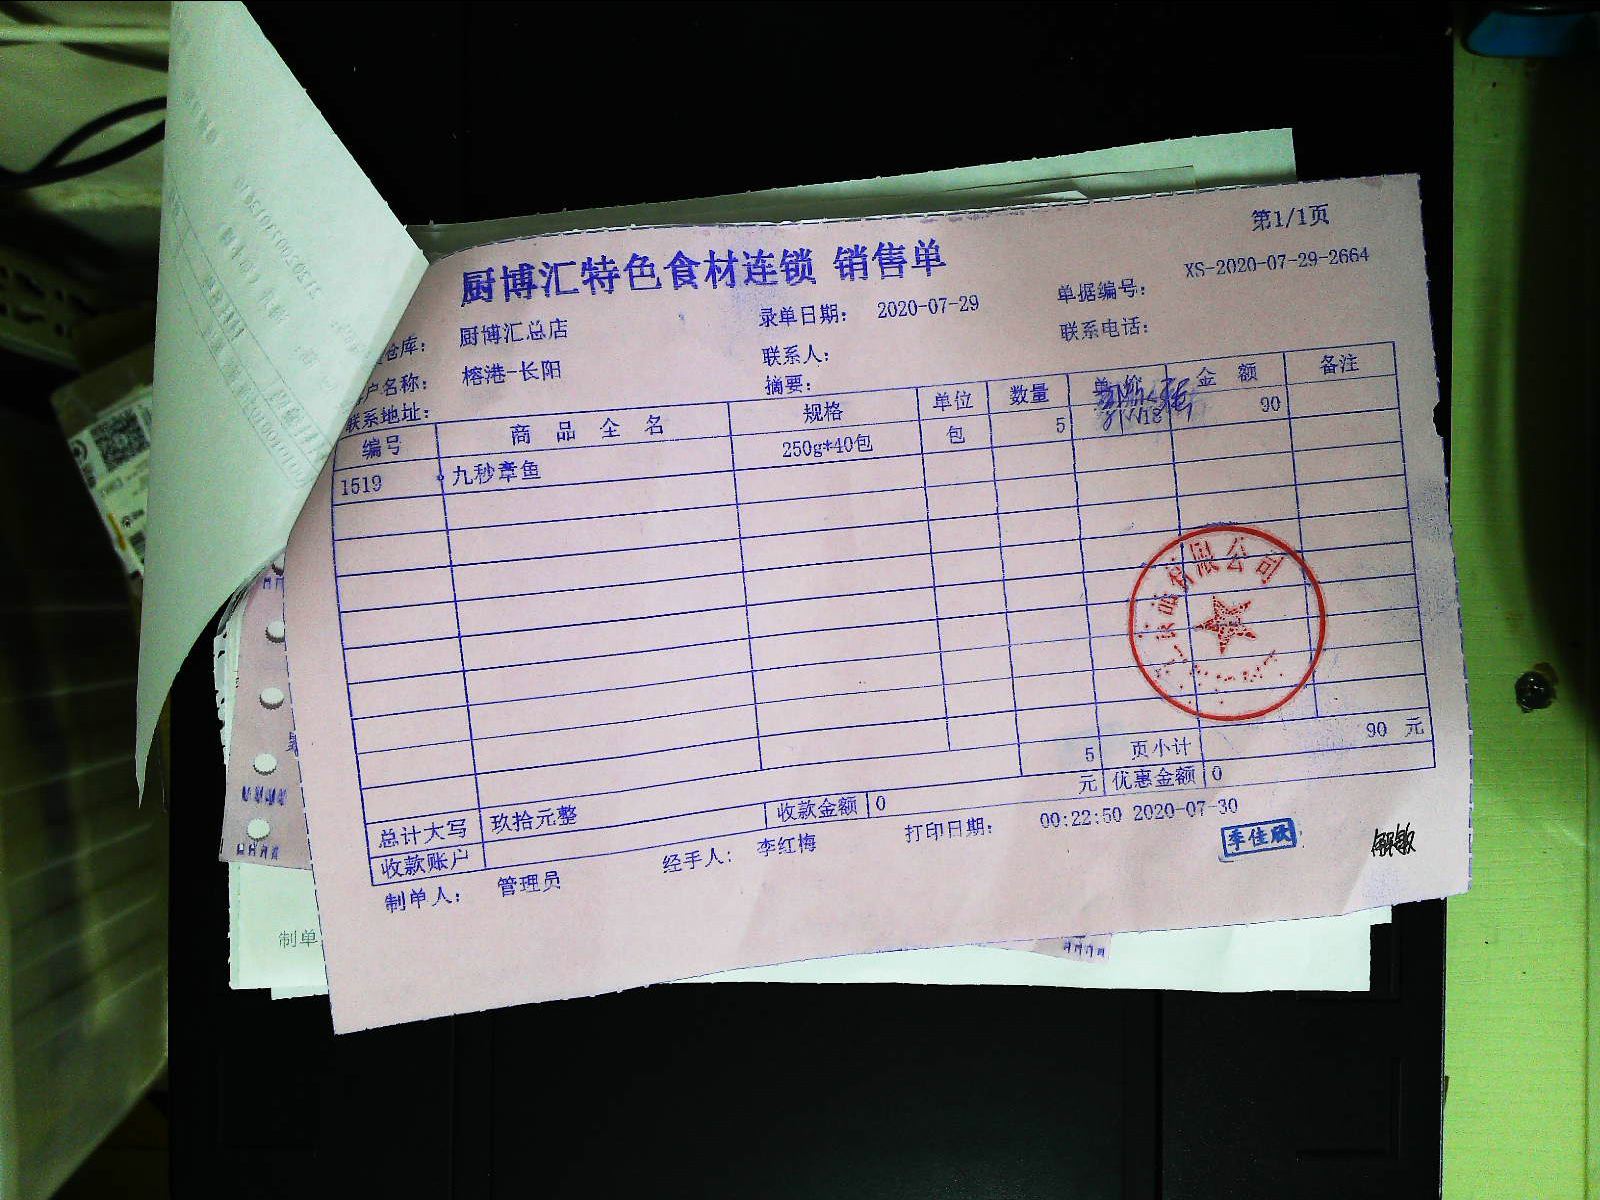 第1/1页
厨博汇特色食材连锁 销售单
仓库: 厨博汇总店 录单日期: 2020-07-29 单据编号: XS-2020-07-29-2664
户名称: 榕港-长阳 联系人: 联系电话:
联系地址: 摘要:
编号 商品全名 规格 单位 数量 单价 金额 备注
1519 九秒章鱼 250g*40包 包 5 18 90
有限公司
5 页小计 90 元
总计大写 玖拾元整 收款金额 0 元 优惠金额 0
收款账户
制单人: 管理员 经手人: 李红梅 打印日期: 00:22:50 2020-07-30
季佳欣
制单